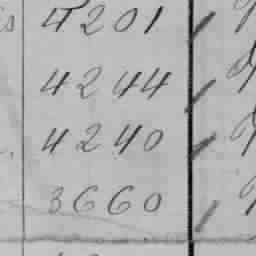 4201
4244
4240
3660